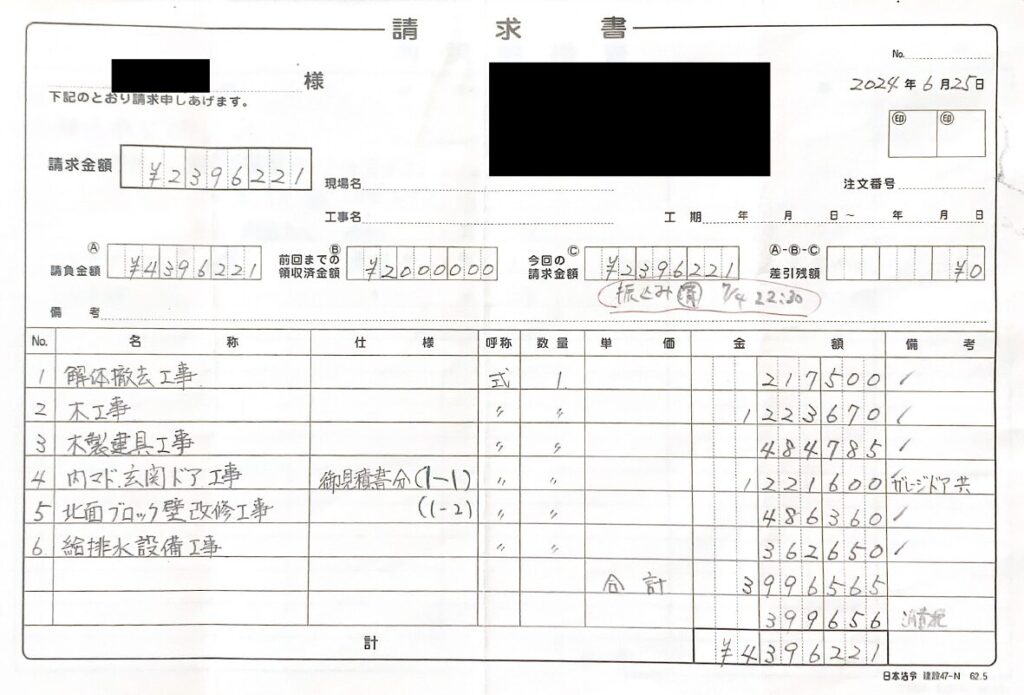 請求書
No.
様
2024年6月25日
下記のとおり請求申しあげます。
印 印
請求金額 ¥2396221
現場名 注文番号
工事名 工期 年 月 日〜 年 月 日
Ⓐ 請負金額 ¥4396221 Ⓑ 前回までの領収済金額 ¥2000000 Ⓒ 今回の請求金額 ¥2396221 Ⓐ-Ⓑ-Ⓒ 差引残額 ¥0
振込み済 7/4 22:30
備考
No. 名称 仕様 呼称 数量 単価 金額 備考
1 解体撤去工事 式 1. 217500 ✓
2 木工事 〃 〃 1223670 ✓
3 木製建具工事 〃 〃 484785 ✓
4 内マド.玄関ドア工事 御見積書分(1-1) 〃 〃 1221600 ガレージドア共
5 北面ブロック壁改修工事 (1-2) 〃 〃 486360 ✓
6 給排水設備工事 〃 〃 362650 ✓
合計 3996565
399656 消費税
計 ¥4396221
日本法令 建設47-N 62.5